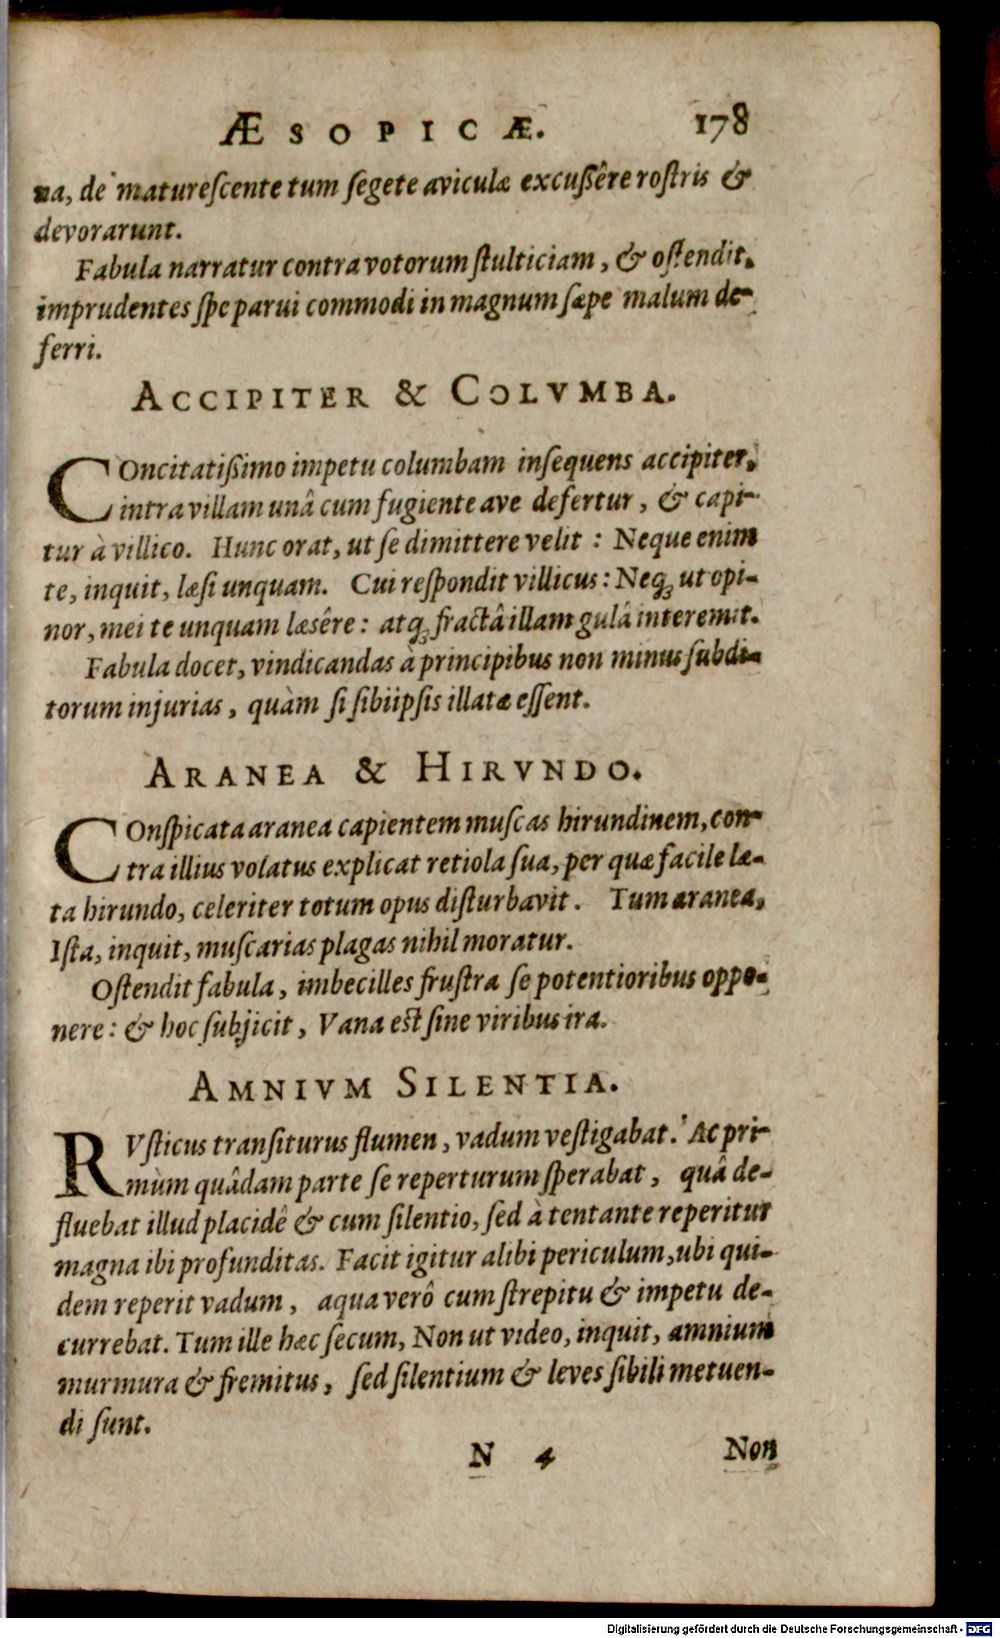 ÆSOPICÆ. 178
na, de maturescente tum segete aviculæ excussêre rostris &
devorarunt.
Fabula narratur contra votorum stulticiam, & ostendit,
imprudentes spe parui commodi in magnum sæpe malum de-
ferri.
ACCIPITER & COLVMBA.
COncitatißimo impetu columbam insequens accipiter,
intra villam unâ cum fugiente ave defertur, & capi-
tur à villico. Hunc orat, ut se dimittere velit: Neque enim
te, inquit, læsi unquam. Cui respondit villicus: Neqꝫ ut opi-
nor, mei te unquam læsêre: atqꝫ fractâ illam gulâ interemit.
Fabula docet, vindicandas à principibus non minus subdi-
torum injurias, quàm si sibiipsis illatæ essent.
ARANEA & HIRVNDO.
COnspicata aranea capientem muscas hirundinem, con-
tra illius volatus explicat retiola sua, per quæ facile læ-
ta hirundo, celeriter totum opus disturbavit. Tum aranea,
Ista, inquit, muscarias plagas nihil moratur.
Ostendit fabula, imbecilles frustra se potentioribus oppo-
nere: & hoc subjicit, Vana est sine viribus ira.
AMNIVM SILENTIA.
RVsticus transiturus flumen, vadum vestigabat. Ac pri-
mùm quâdam parte se reperturum sperabat, quâ de-
fluebat illud placidê & cum silentio, sed à tentante reperitur
magna ibi profunditas. Facit igitur alibi periculum, ubi qui-
dem reperit vadum, aqua verô cum strepitu & impetu de-
currebat. Tum ille hæc secum, Non ut video, inquit, amnium
murmura & fremitus, sed silentium & leves sibili metuen-
di sunt.
N 4 Non
Digitalisierung gefördert durch die Deutsche Forschungsgemeinschaft - DFG